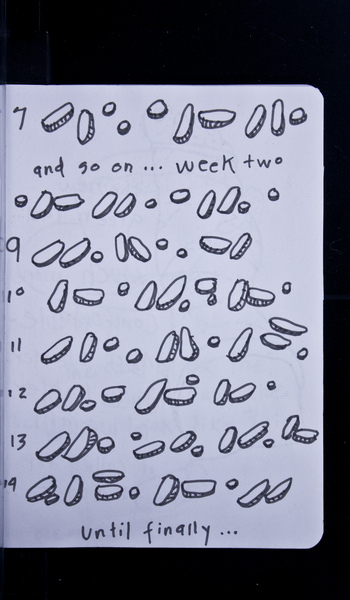 7
and so on ... week two
9
10
11
12
13
14
until finally ...